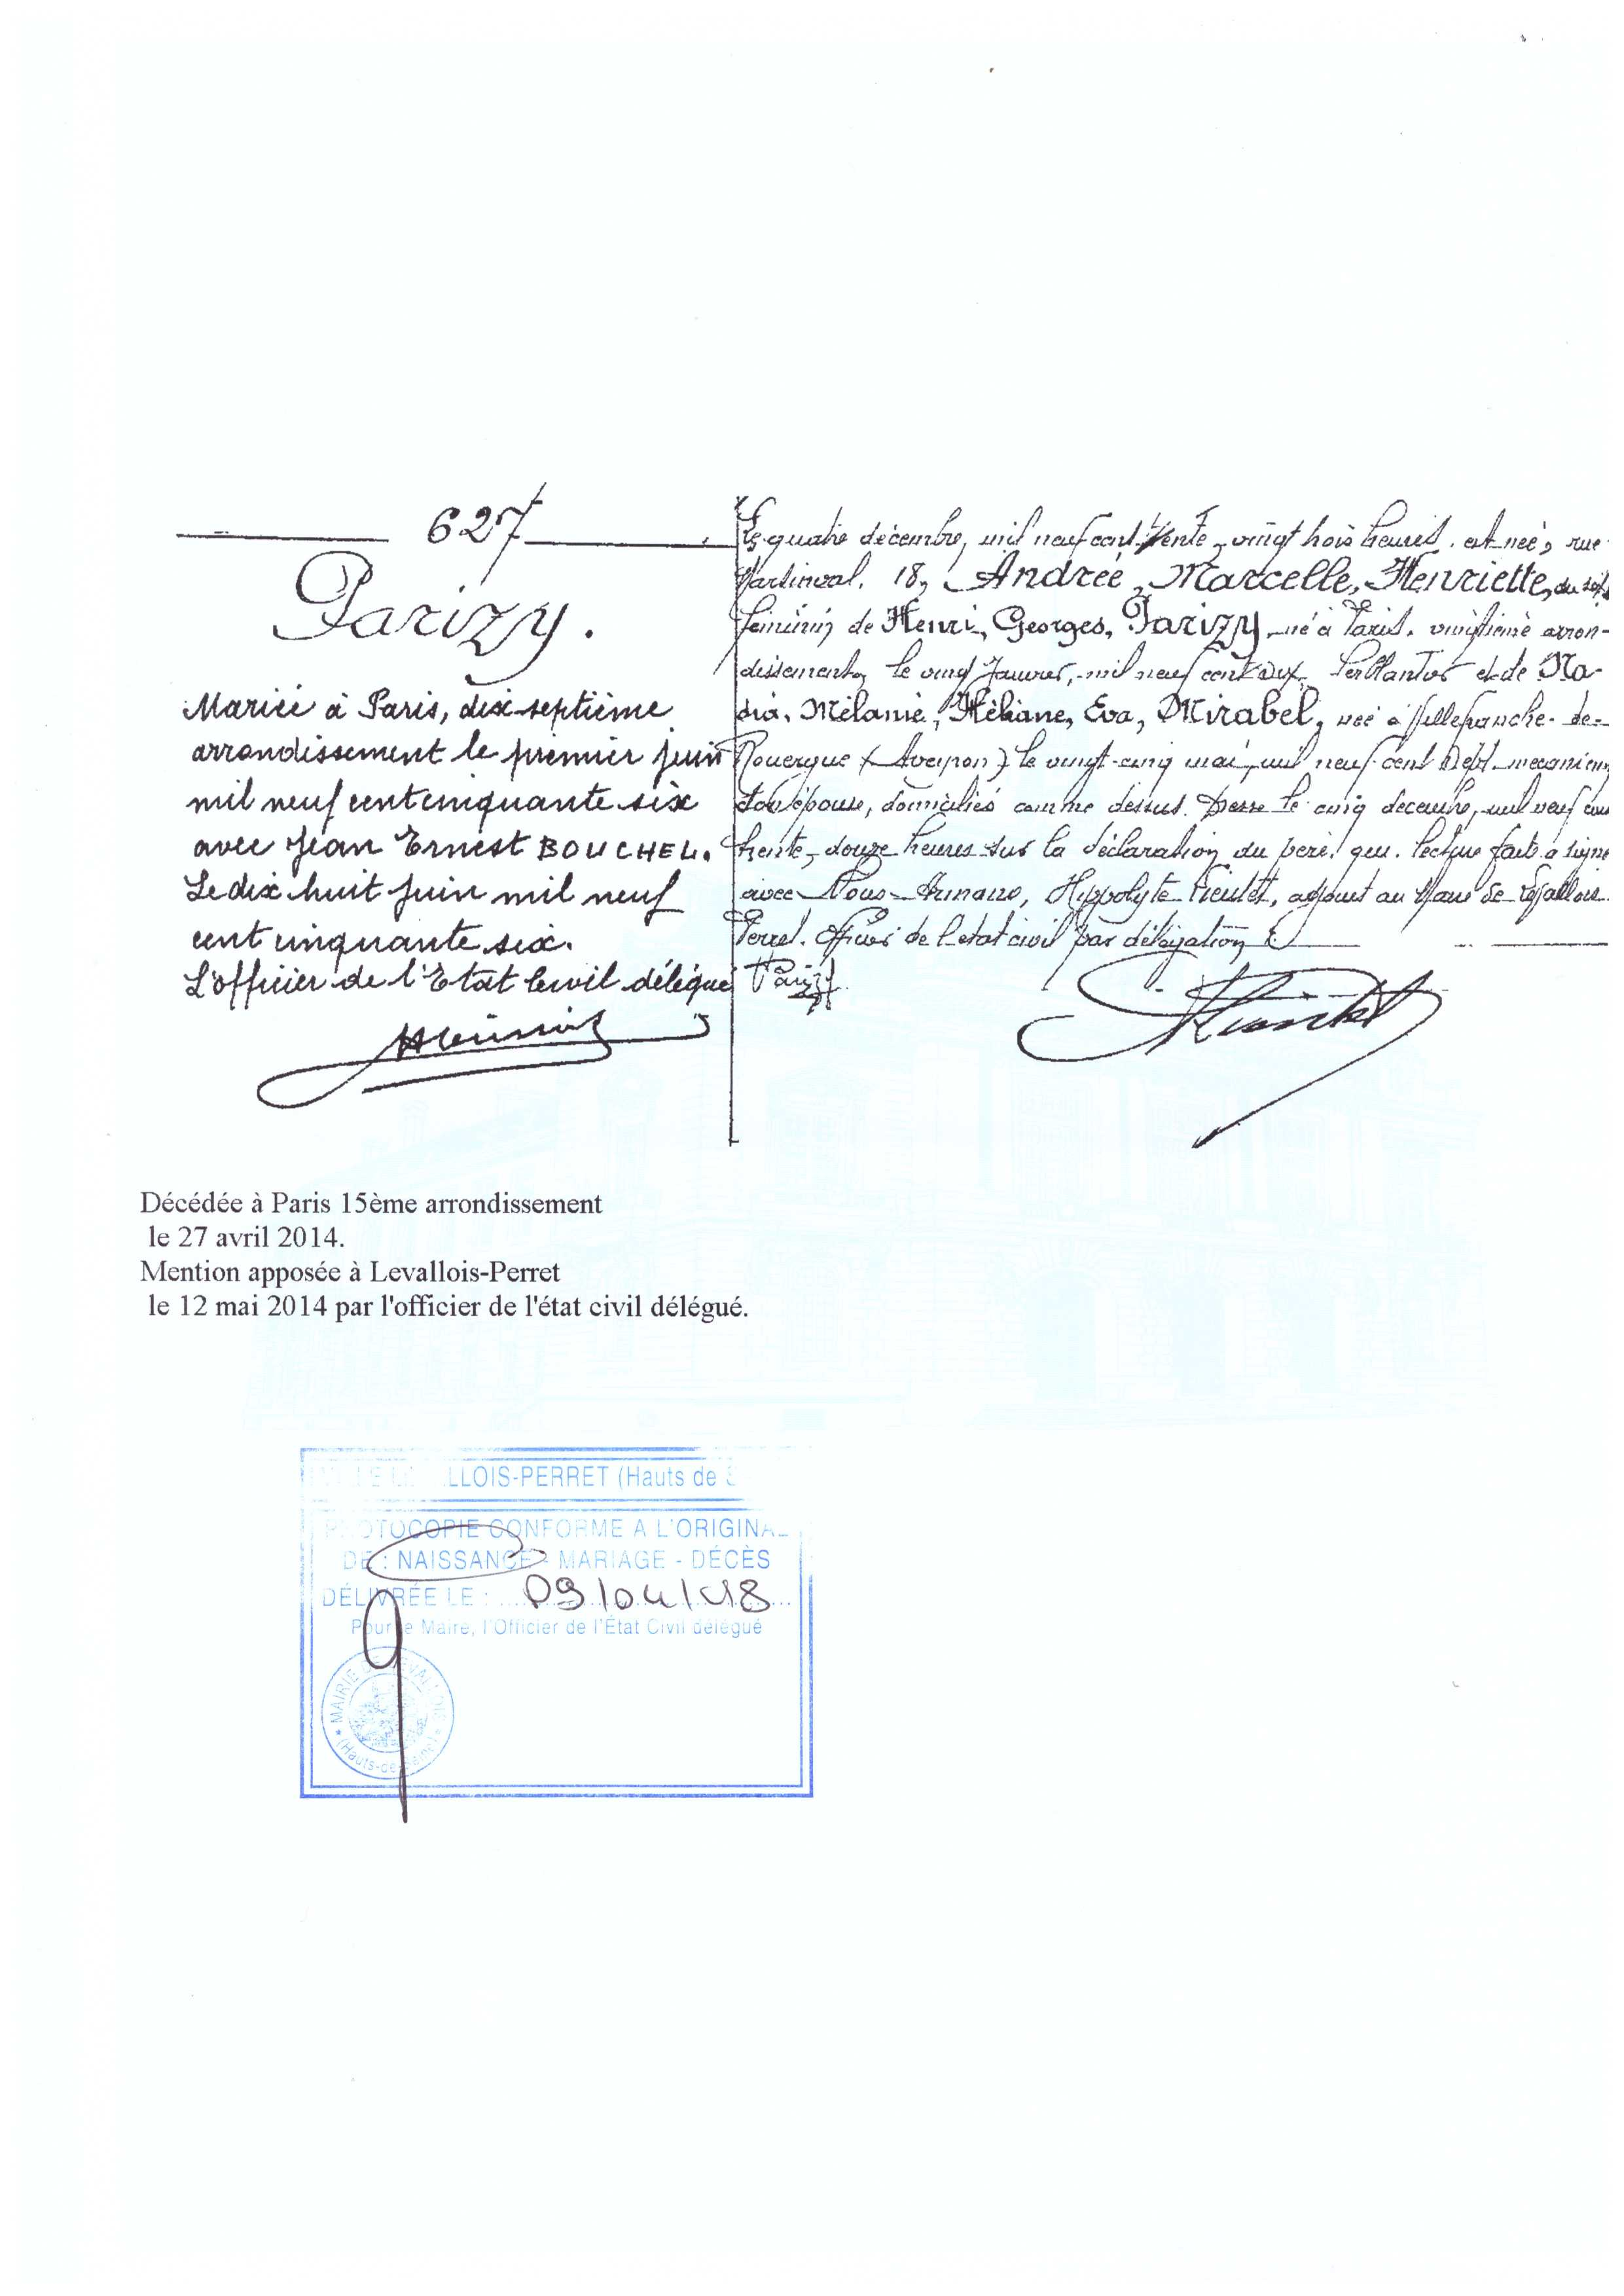 627
Parizy.
Mariée à Paris, dix-septième
arrondissement le premier juin
mil neuf cent cinquante six
avec Jean Ernest BOUCHEL.
Le dix huit juin mil neuf
cent cinquante six.
L'officier de l'Etat Civil délégué
Le quatre décembre, mil neuf cent trente, vingt trois heures, est née, rue
18, Andrée, Marcelle, Henriette, du sexe
féminin de Henri, Georges, Parizy, né à Paris, vingtième arron-
dissement, le vingt Janvier, mil neuf cent deux, et de Na-
dia, Mélanie, Héliane, Eva, Mirabel, née à Villefranche-de-
Rouergue (Aveyron) le vingt-cinq mai, mil neuf cent sept, mécanicien
son épouse, domiciliés comme dessus. Dressé le cinq décembre, mil neuf cent
trente, douze heures sur la déclaration du père, qui, lecture faite a signé
avec Nous, Hippolyte adjoint au Maire de Levallois-
Perret, Officier de l'état civil par délégation
Parizy
Décédée à Paris 15ème arrondissement
le 27 avril 2014.
Mention apposée à Levallois-Perret
le 12 mai 2014 par l'officier de l'état civil délégué.
LLOIS-PERRET (Hauts de
PHOTOCOPIE CONFORME A L'ORIGINAL
DE : NAISSANCE - MARIAGE - DÉCÈS
DÉLIVRÉE LE : 09/04/18
Pour le Maire, l'Officier de l'État Civil délégué
MAIRIE DE LEVALLOIS
(Hauts-de-Seine)